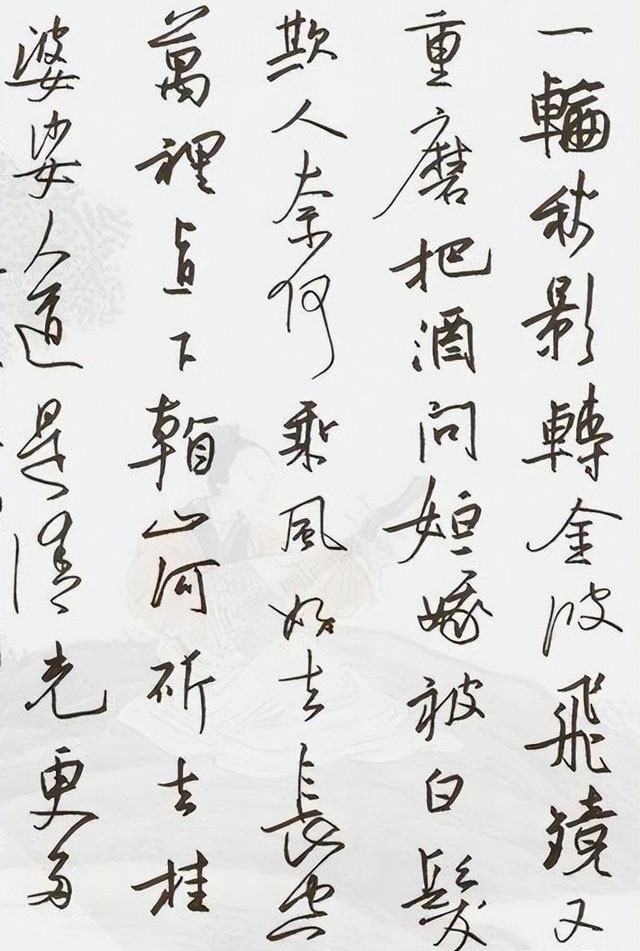 一輪秋影轉金波飛鏡又
重磨把酒問姮娥被白髮
欺人奈何乘風好去長空
萬裡直下看山河斫去桂
婆娑人道是清光更多